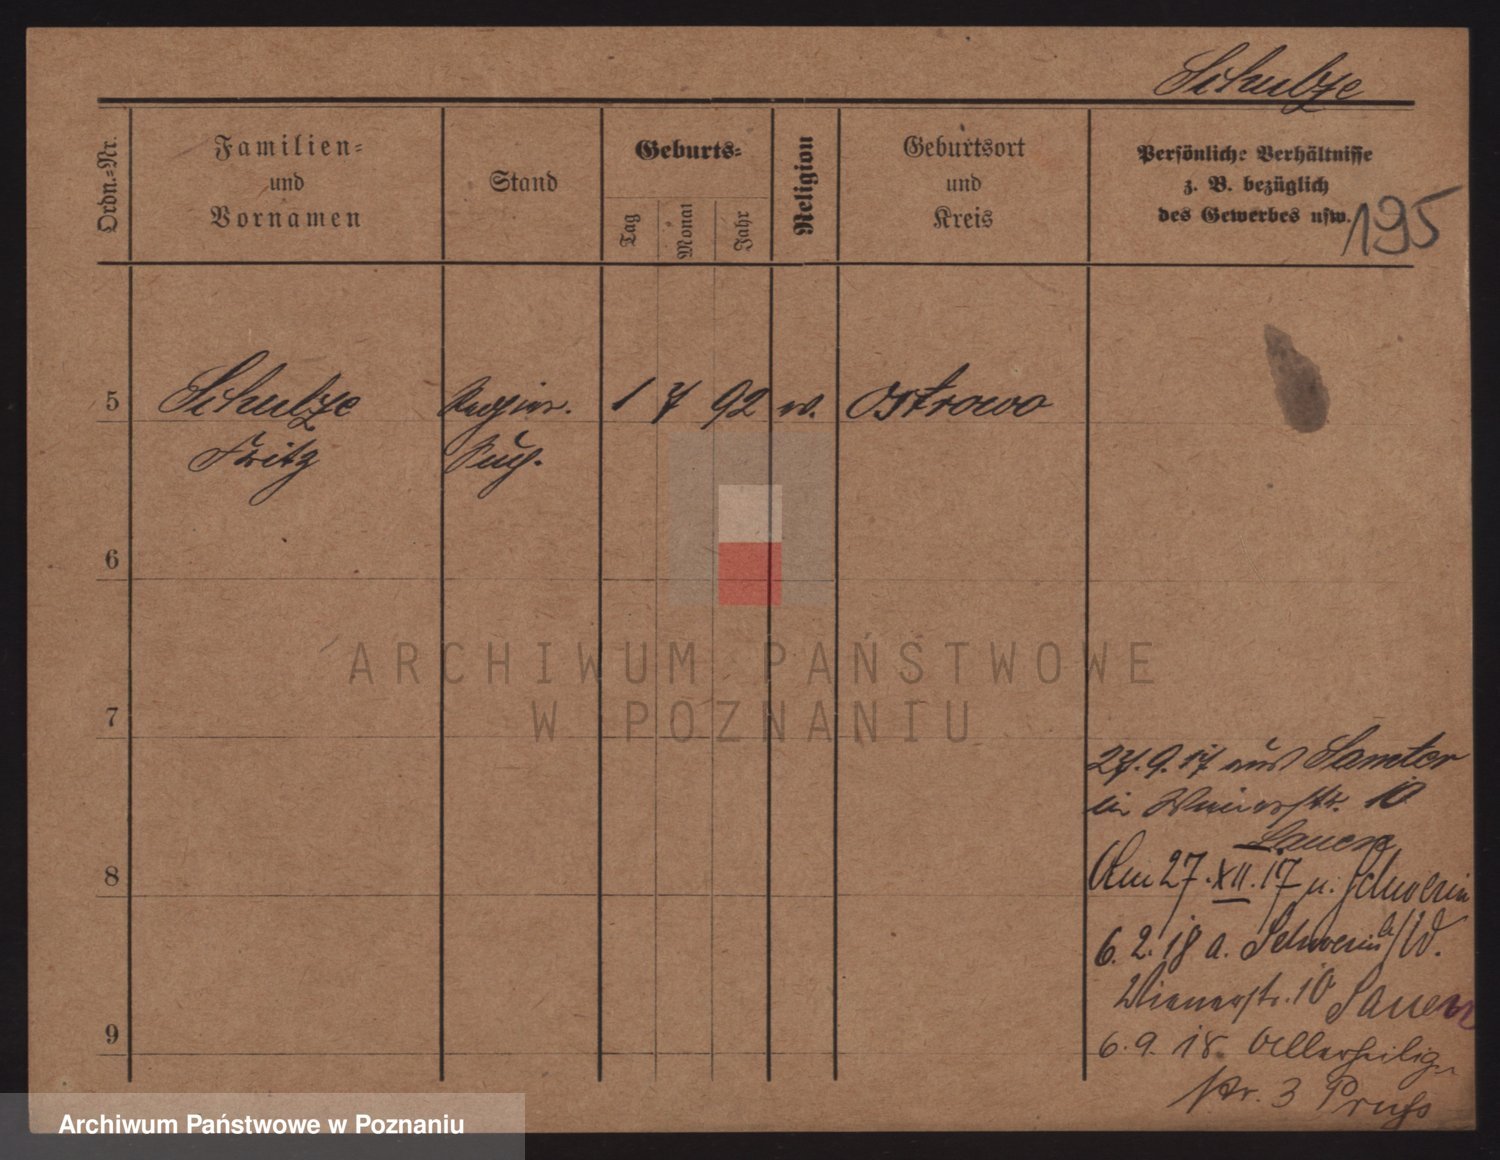 Schulze
Ordn.-Nr.
Familien-
und
Vornamen
Stand
Geburts-
Tag
Monat
Jahr
Religion
Geburtsort
und
Kreis
Persönliche Verhältnisse
z. B. bezüglich
des Gewerbes usw.
195
5
Schulze
Fritz
Regier.
1 7 92
Ostrowo
6
7
8
9
27.9.17 aus Samter
in Wienerstr. 10
Sauer
Am 27.XII.17 n. Schwerin
6.2.18 a. Schwerin a/W.
Wienerstr. 10 Sauer
6.9.18 Allerheilig.
str. 3
ARCHIWUM PAŃSTWOWE
W POZNANIU
Archiwum Państwowe w Poznaniu